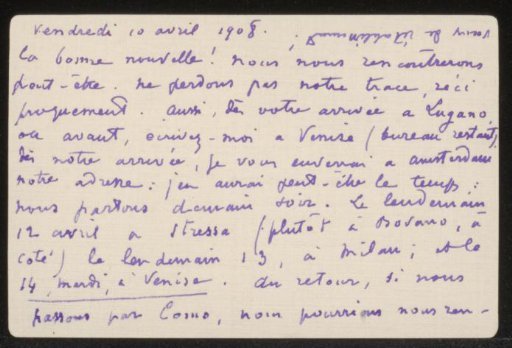 Vendredi 10 avril 1908.
la bonne nouvelle! nous nous rencontrerons
peut-être. ne perdons pas notre trace, réci
proquement. Aussi, dès votre arrivée à Lugano,
ou avant, écrivez-moi à Venise (bureau restant)
dès notre arrivée, je vous enverrai à Amsterdam
notre adresse: j'en aurai peut-être le temps;
nous partons demain soir. Le lendemain
12 avril à Stressa (plutôt à Bovano, à
coté) le lendemain 13, à Milan; et le
14, mardi, à Venise. Au retour, si nous
passons par Como, nous pourrions nous ren-